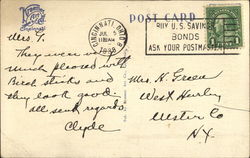 POST CARD
CINCINNATI, OHIO
JUL
1938
BUY U.S. SAVINGS
BONDS
ASK YOUR POSTMASTER
Mrs. T.
They were very
much pleased with
Bish sticks and
they look good.
all send regards,
Clyde
Mrs. H. Green
West Hurley
Ulster Co
N.Y.